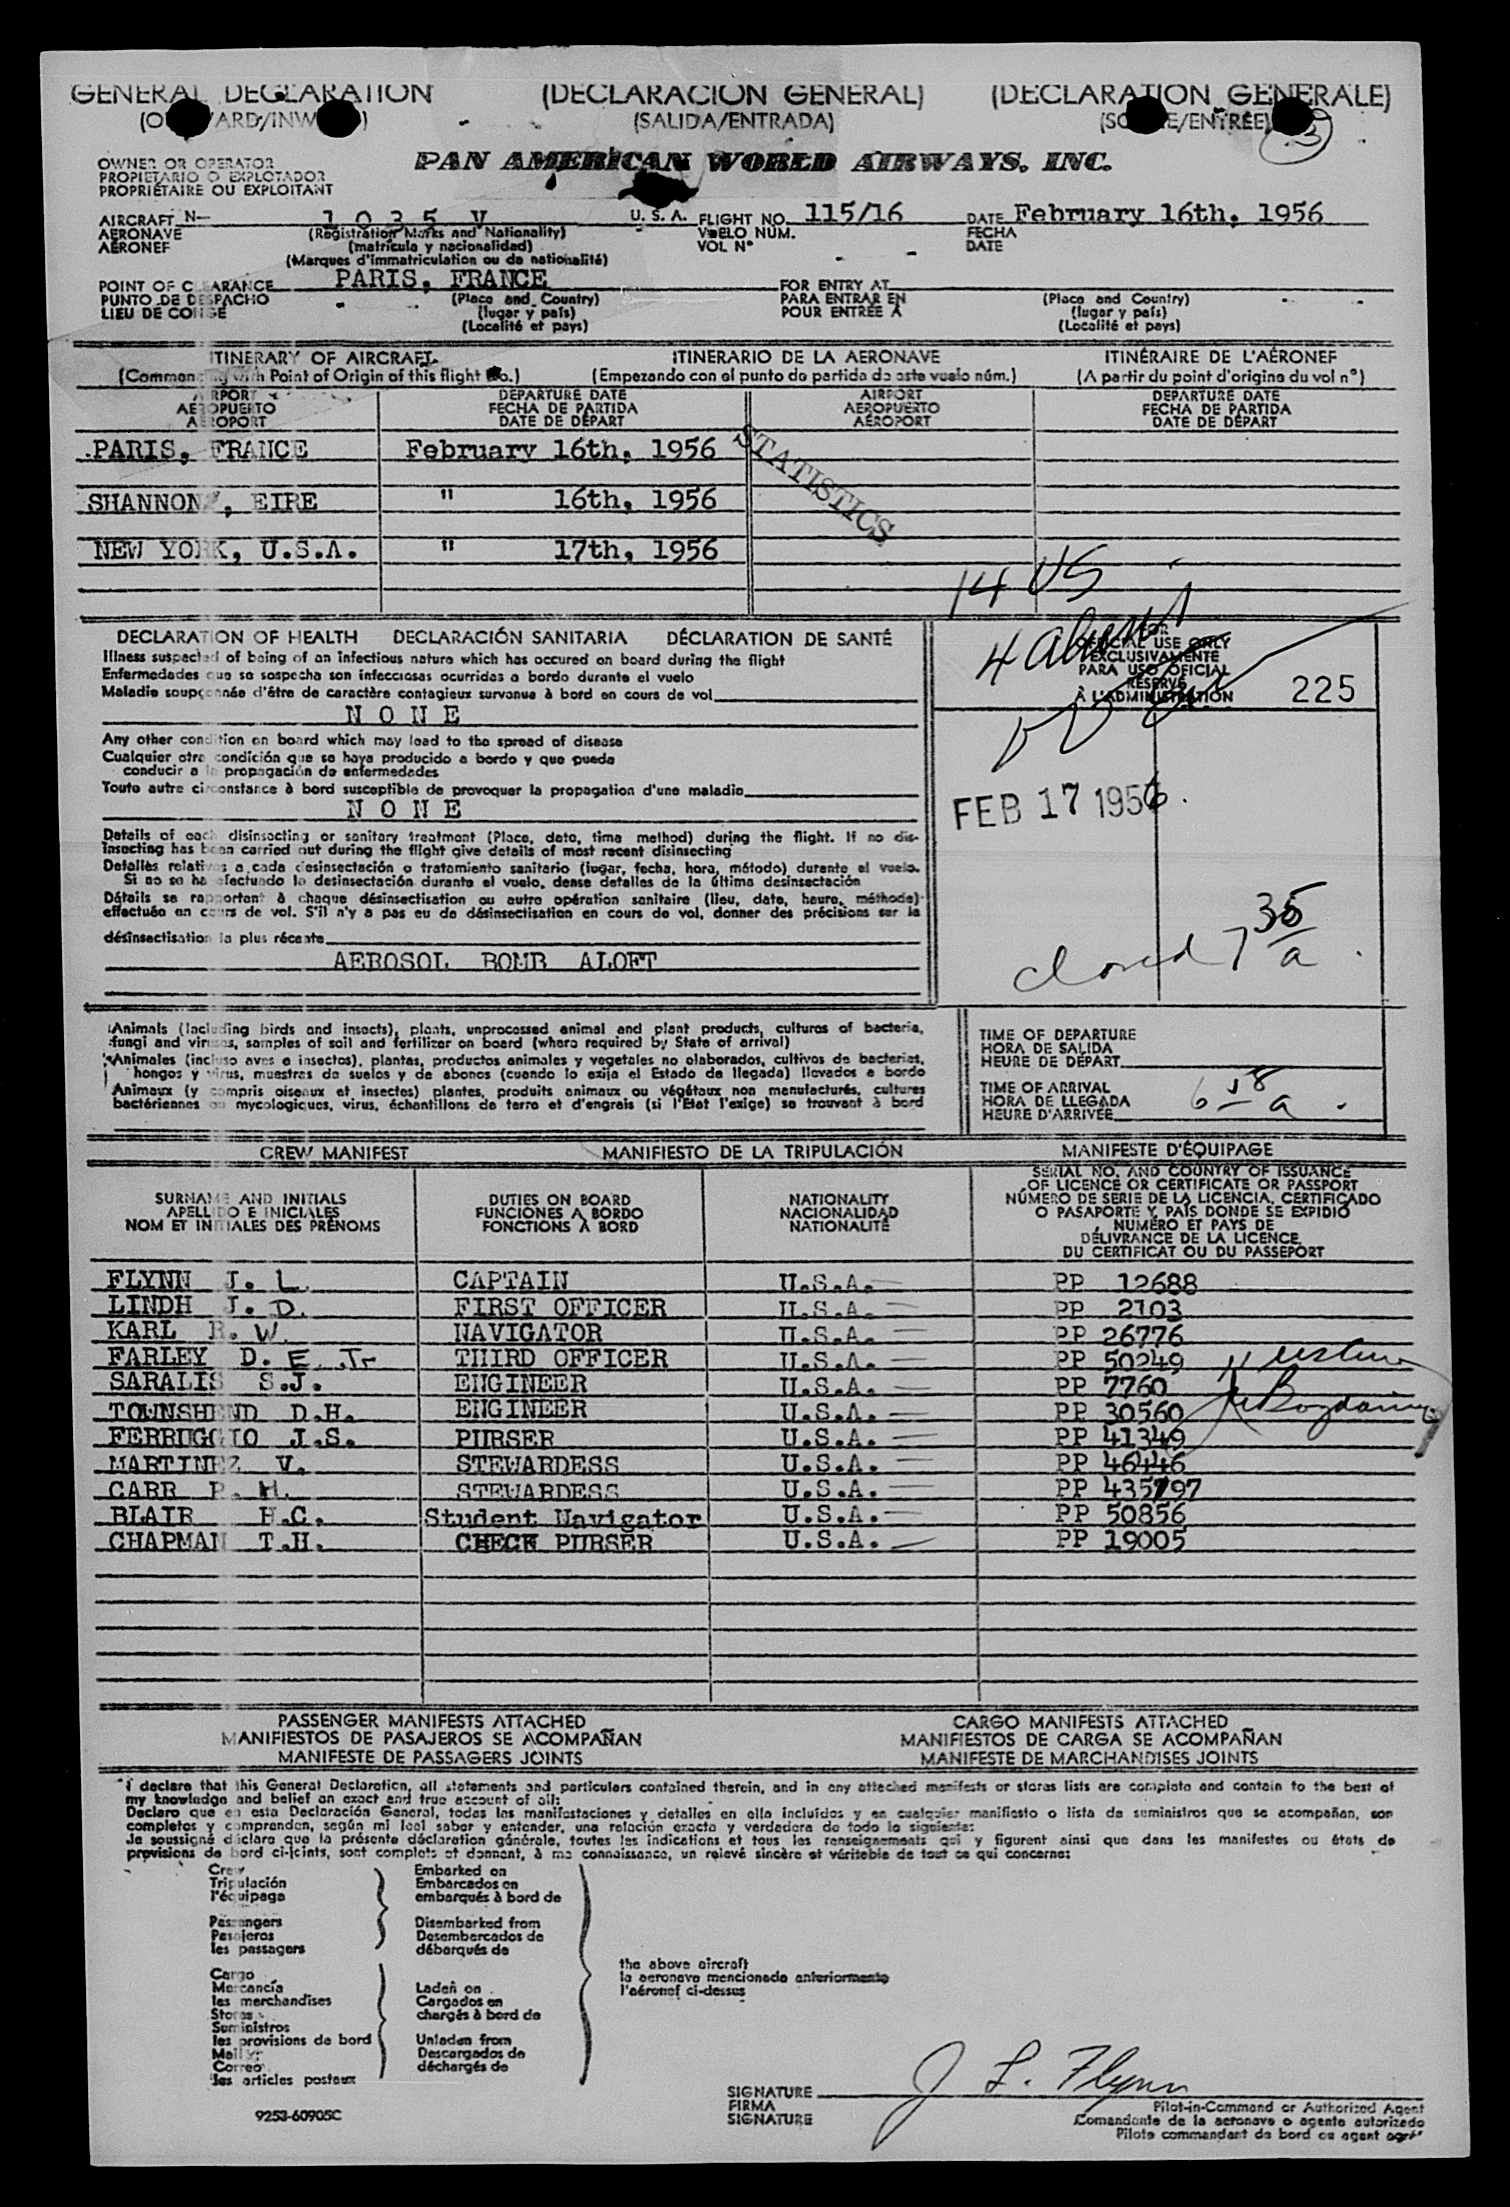 GENERAL DECLARATION (DECLARACION GENERAL) (DECLARATION GENERALE)
(SALIDA/ENTRADA)
3
OWNER OR OPERATOR
PROPIETARIO O EXPLOTADOR
PROPRIÉTAIRE OU EXPLOITANT
PAN AMERICAN WORLD AIRWAYS, INC.
AIRCRAFT N- 1 0 3 5 V U. S. A. FLIGHT NO. 115/16 DATE February 16th, 1956
AERONAVE (Registration Marks and Nationality) VUELO NÚM. FECHA
AÉRONEF (matrícula y nacionalidad) VOL Nº DATE
(Marques d'immatriculation ou de nationalité)
POINT OF CLEARANCE PARIS, FRANCE FOR ENTRY AT
PUNTO DE DESPACHO (Place and Country) PARA ENTRAR EN (Place and Country)
LIEU DE CONGÉ (lugar y país) POUR ENTRÉE À (lugar y país)
(Localité et pays) (Localité et pays)
ITINERARY OF AIRCRAFT ITINERARIO DE LA AERONAVE ITINÉRAIRE DE L'AÉRONEF
(Commencing with Point of Origin of this flight No.) (Empezando con el punto de partida de este vuelo núm.) (A partir du point d'origine du vol nº)
AIRPORT DEPARTURE DATE AIRPORT DEPARTURE DATE
AEROPUERTO FECHA DE PARTIDA AEROPUERTO FECHA DE PARTIDA
AÉROPORT DATE DE DÉPART AÉROPORT DATE DE DÉPART
PARIS, FRANCE February 16th, 1956
STATISTICS
SHANNON, EIRE " 16th, 1956
NEW YORK, U.S.A. " 17th, 1956
14 US
DECLARATION OF HEALTH DECLARACIÓN SANITARIA DÉCLARATION DE SANTÉ
4 aliens
FOR
OFFICIAL USE ONLY
EXCLUSIVAMENTE
PARA USO OFICIAL
RÉSERVÉ
À L'ADMINISTRATION
225
Illness suspected of being of an infectious nature which has occured on board during the flight
Enfermedades que se sospecha son infecciosas ocurridas a bordo durante el vuelo
Maladie soupçonnée d'être de caractère contagieux survenue à bord en cours de vol
N O N E
Any other condition on board which may lead to the spread of disease
Cualquier otra condición que se haya producido a bordo y que pueda
conducir a la propagación de enfermedades
Toute autre circonstance à bord susceptible de provoquer la propagation d'une maladie
N O N E
FEB 17 1956
Details of each disinsecting or sanitary treatment (Place, date, time method) during the flight. If no dis-
insecting has been carried out during the flight give details of most recent disinsecting
Detalles relativos a cada desinsectación o tratamiento sanitario (lugar, fecha, hora, método) durante el vuelo.
Si no se ha efectuado la desinsectación durante el vuelo, dense detalles de la última desinsectación
Détails se rapportant à chaque désinsectisation ou autre opération sanitaire (lieu, date, heure, méthode)
effectuée en cours de vol. S'il n'y a pas eu de désinsectisation en cours de vol, donner des précisions sur la
désinsectisation la plus récente
AEROSOL BOMB ALOFT
closed 7 35 a
Animals (including birds and insects), plants, unprocessed animal and plant products, cultures of bacteria,
fungi and viruses, samples of soil and fertilizer on board (where required by State of arrival)
Animales (incluso aves e insectos), plantas, productos animales y vegetales no elaborados, cultivos de bacterias,
hongos y virus, muestras de suelos y de abonos (cuando lo exija el Estado de llegada) llevados a bordo
Animaux (y compris oiseaux et insectes) plantes, produits animaux ou végétaux non manufacturés, cultures
bactériennes ou mycologiques, virus, échantillons de terre et d'engrais (si l'Etat l'exige) se trouvant à bord
TIME OF DEPARTURE
HORA DE SALIDA
HEURE DE DÉPART
TIME OF ARRIVAL
HORA DE LLEGADA
HEURE D'ARRIVÉE
6 58 a
CREW MANIFEST MANIFIESTO DE LA TRIPULACIÓN MANIFESTE D'ÉQUIPAGE
SURNAME AND INITIALS
APELLIDO E INICIALES
NOM ET INITIALES DES PRÉNOMS
DUTIES ON BOARD
FUNCIONES A BORDO
FONCTIONS À BORD
NATIONALITY
NACIONALIDAD
NATIONALITÉ
SERIAL NO. AND COUNTRY OF ISSUANCE
OF LICENCE OR CERTIFICATE OR PASSPORT
NÚMERO DE SERIE DE LA LICENCIA, CERTIFICADO
O PASAPORTE Y PAÍS DONDE SE EXPIDIÓ
NUMÉRO ET PAYS DE
DÉLIVRANCE DE LA LICENCE
DU CERTIFICAT OU DU PASSEPORT
FLYNN J. L. CAPTAIN U.S.A. PP 12688
LINDH J. D. FIRST OFFICER U.S.A. PP 2103
KARL R. W. NAVIGATOR U.S.A. PP 26776
FARLEY D. E. Jr THIRD OFFICER U.S.A. PP 50249
SARALIS S.J. ENGINEER U.S.A. PP 7760
TOWNSHEND D.H. ENGINEER U.S.A. PP 30560
FERRUGGIO J.S. PURSER U.S.A. PP 41349
MARTINEZ V. STEWARDESS U.S.A. PP 46446
CARR P. H. STEWARDESS U.S.A. PP 435797
BLAIR H.C. Student Navigator U.S.A. PP 50856
CHAPMAN T.H. CHECK PURSER U.S.A. PP 19005
PASSENGER MANIFESTS ATTACHED CARGO MANIFESTS ATTACHED
MANIFIESTOS DE PASAJEROS SE ACOMPAÑAN MANIFIESTOS DE CARGA SE ACOMPAÑAN
MANIFESTE DE PASSAGERS JOINTS MANIFESTE DE MARCHANDISES JOINTS
I declare that this General Declaration, all statements and particulars contained therein, and in any attached manifests or stores lists are complete and contain to the best of
my knowledge and belief an exact and true account of all:
Declaro que en esta Declaración General, todas las manifestaciones y detalles en ella incluídos y en cualquier manifiesto o lista de suministros que se acompañan, son
completos y comprenden, según mi leal saber y entender, una relación exacta y verdadera de todo lo siguiente:
Je soussigné déclare que la présente déclaration générale, toutes les indications et tous les renseignements qui y figurent ainsi que dans les manifestes ou états de
provisions de bord ci-joints, sont complets et donnent, à ma connaissance, un relevé sincère et véritable de tout ce qui concerne:
Crew Embarked on
Tripulación Embarcados en
l'équipage embarqués à bord de
Passengers Disembarked from
Pasajeros Desembarcados de
les passagers débarqués de
the above aircraft
la aeronave mencionada anteriormente
l'aéronef ci-dessus
Cargo
Mercancía Laden on
les merchandises Cargados en
Stores chargés à bord de
Suministros
les provisions de bord Unladen from
Mail Descargados de
Correo déchargés de
les articles postaux
SIGNATURE J L. Flynn
FIRMA Pilot-in-Command or Authorized Agent
SIGNATURE Comandante de la aeronave o agente autorizado
Pilote commandant de bord ou agent agréé
9253-60905C